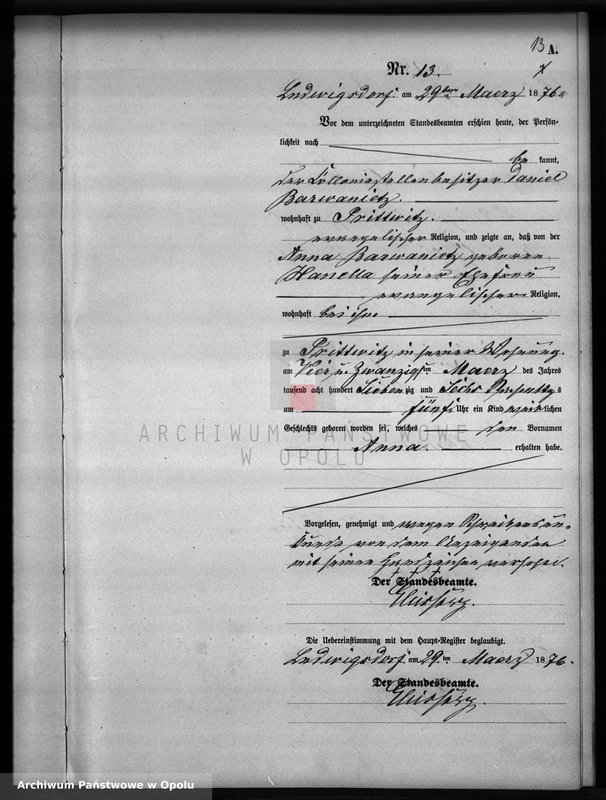 13 A.
Nr. 13.
Ludwigsdorf am 29ten Maerz 1876
Vor dem unterzeichneten Standesbeamten erschien heute, der Persön-
lichkeit nach
be kannt,
der Colloniestellenbesitzer Daniel
Barwanietz
wohnhaft zu Prittwitz
evangelischer Religion, und zeigte an, daß von der
Anna Barwanietz geboren
Hanella seiner Ehefrau
evangelischer Religion,
wohnhaft bei ihm
zu Prittwitz in seiner Wohnung
am Vier u. Zwanzigsten Maerz des Jahres
tausend acht hundert Sieben zig und Sechs s
um fünf Uhr ein Kind weib lichen
Geschlechts geboren worden sei, welches den Vornamen
Anna erhalten habe.
Vorgelesen, genehmigt und wegen Schreibensun-
kunde von dem Anzeigenden
mit seinem Handzeichen versehen.
+++
Der Standesbeamte.
Die Uebereinstimmung mit dem Haupt-Register beglaubigt.
Ludwigsdorf am 29ten Maerz 1876.
Der Standesbeamte.
ARCHIWUM PAŃSTWOWE
W OPOLU
Archiwum Państwowe w Opolu